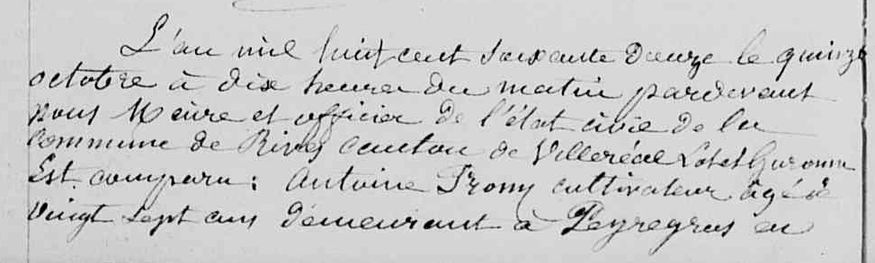 L'an mil huit cent soixante douze le quinze
octobre à dix heures du matin pardevant
nous Maire et officier de l'état civil de la
commune de Rives canton de Villeréal Lot et Garonne
Est comparu : Antoine Frony cultivateur âgé de
vingt sept ans demeurant à Peyregrus en